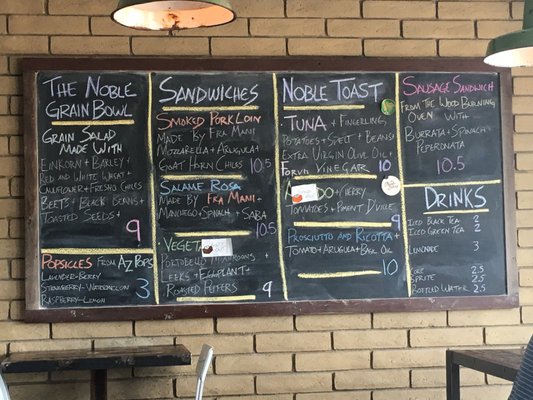 The Noble
Grain Bowl
Grain Salad
Made With
Einkorn + Barley +
Red and White Wheat +
Cauliflower + Fresno Chiles
Beets + Black Beans +
Toasted Seeds +
9
Popsicles From AZ Pops
Lavender-Berry
Strawberry-Watermelon
Raspberry-Lemon
3
Sandwiches
Smoked Pork Loin
Made By Fra Mani
Mozzarella + Arugula +
Goat Horn Chiles 10.5
Salame Rosa
Made By Fra Mani +
Manchego + Spinach + Saba
10.5
Portobello Mushrooms +
Leeks + Eggplant +
Roasted Peppers 9
Noble Toast
Tuna + Fingerling
Potatoes + Spelt + Beans
Extra Virgin Olive Oil +
Forvm Vinegar 10
+ Cherry
Tomatoes + Piment D'Ville
9
Prosciutto and Ricotta +
Tomato + Arugula + Basil Oil
10
Sausage Sandwich
From the Wood Burning
Oven With
Burrata + Spinach +
Peperonata
10.5
Drinks
Iced Black Tea 2
Iced Green Tea 2
Lemonade 3
Coke 2.5
Sprite 2.5
Bottled Water 2.5